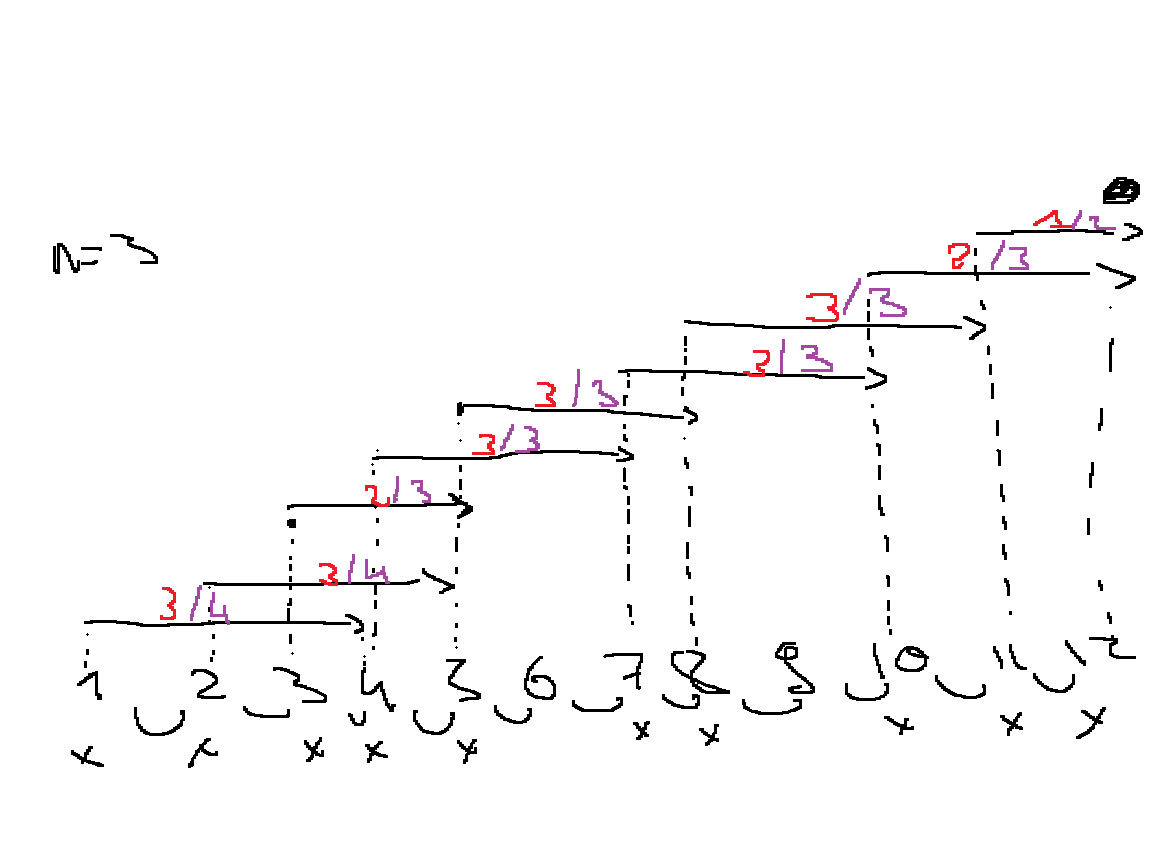 1/2
n=3
?/3
3/3
3/3
3/3
3/3
2/3
3/4
3/4
1 2 3 4 5 6 7 8 9 10 11 12
x x x x x x x x x x